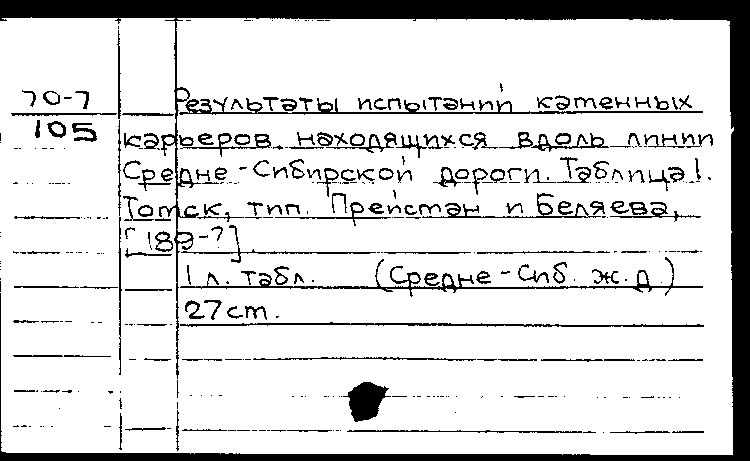 70-7 Результаты испытаний каменных
105 карьеров, находящихся вдоль линии
Средне-Сибирской дороги. Таблица 1.
Томск, тип. Прейсман и Беляева,
[189-?].
1 л. табл. (Средне-Сиб. ж.д.)
27 см.